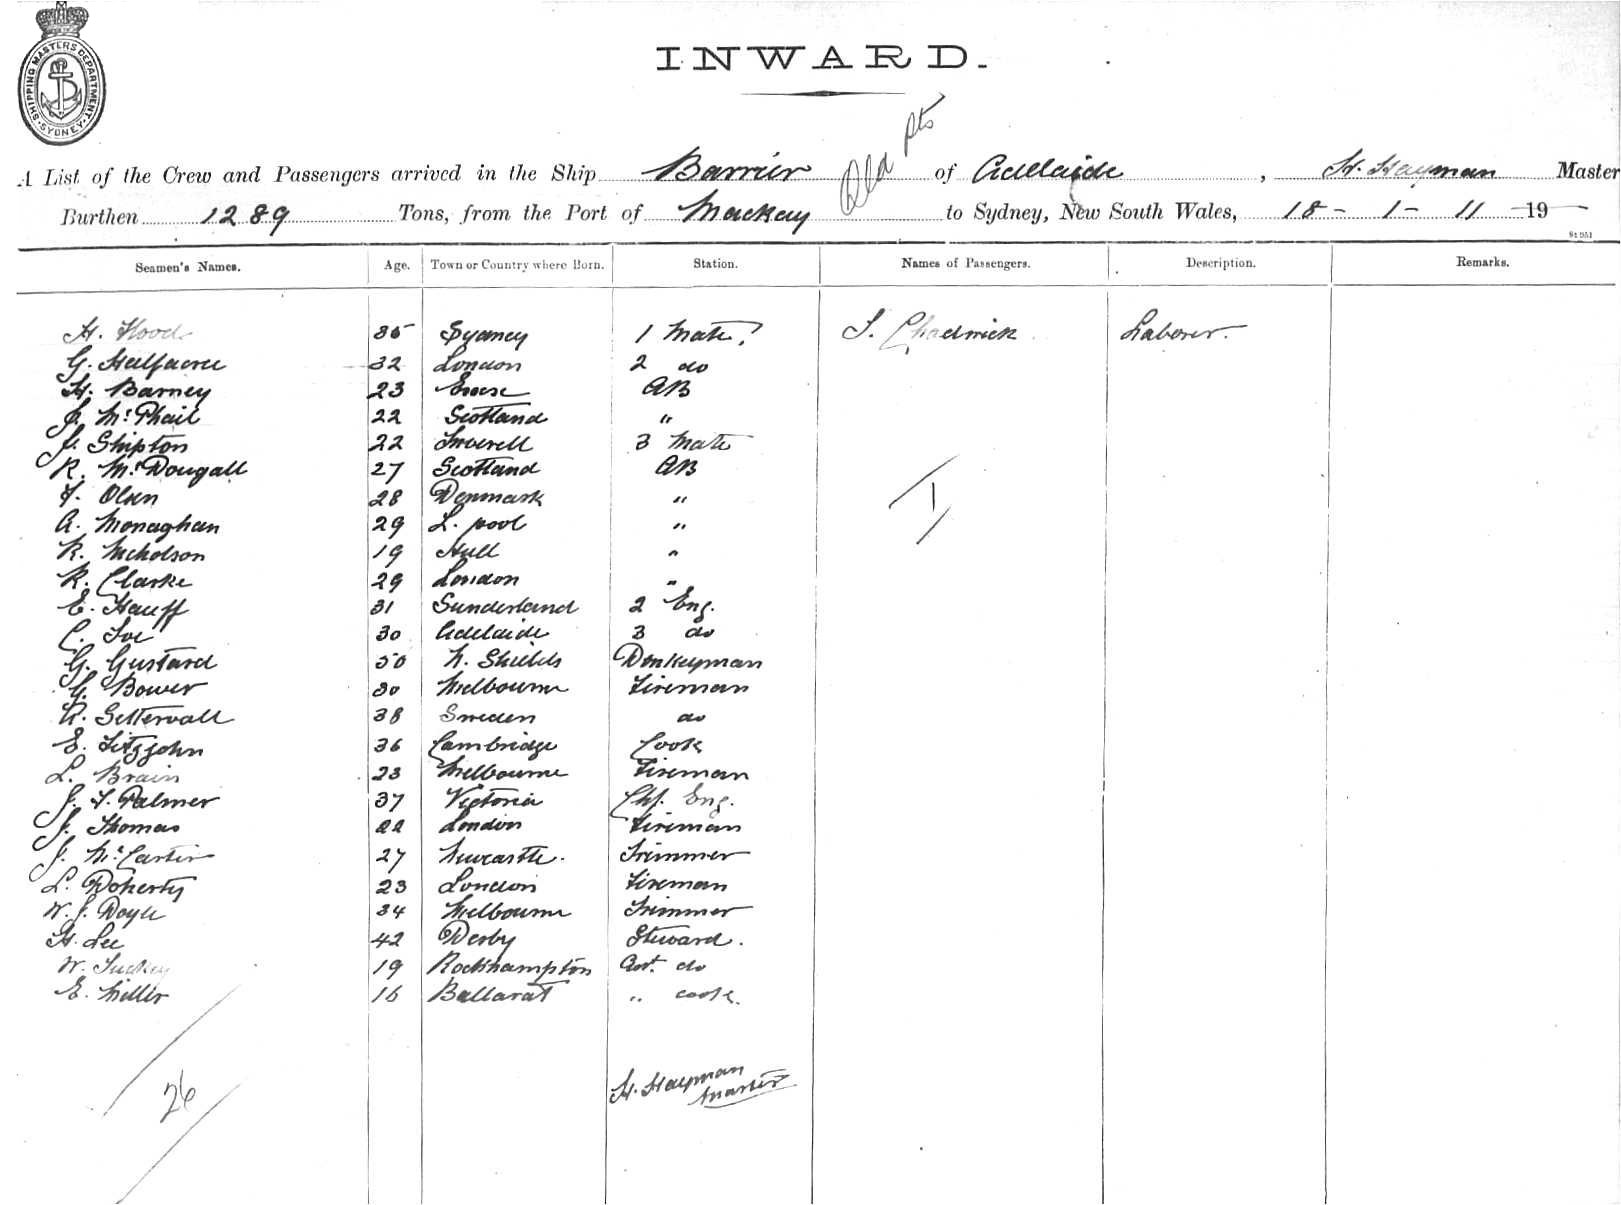 SHIPPING MASTERS DEPARTMENT. SYDNEY
INWARD.
Old Pts
A List of the Crew and Passengers arrived in the Ship Barrier of Adelaide, H. Hayman Master
Burthen 1289 Tons, from the Port of Mackay to Sydney, New South Wales, 18 - 1 - 11 19
Seamen's Names. Age. Town or Country where Born. Station. Names of Passengers. Description. Remarks.
H. Hood 35 Sydney 1 Mate J. Chadwick Laborer.
G. Halfacre 32 London 2 do
H. Barney 23 AB
J. McPhail 22 Scotland "
J. Shipton 22 Inverell 3 Mate
R. McDougall 27 Scotland AB
F. Olsen 28 Denmark "
A. Monaghan 29 L. pool "
R. Nicholson 19 Hull "
R. Clarke 29 London "
E. Hauff 31 Sunderland 2 Eng.
C. 30 Adelaide 3 do
G. Gustard 50 N. Shields Donkeyman
G. Bower 30 Melbourne Fireman
R. Settervall 38 Sweden do
E. Fitzjohn 36 Cambridge Cook
L. Brain 23 Melbourne Fireman
J. F. Palmer 37 Victoria Chf. Eng.
J. Thomas 22 London Fireman
J. McCartin 27 Newcastle. Trimmer
L. Doherty 23 London Fireman
W. J. Doyle 34 Melbourne Trimmer
H. Lee 42 Derby Steward.
W. Tuckey 19 Rockhampton Asst. do
E. Miller 16 Ballarat " cook.
1
26
H. Hayman
Master